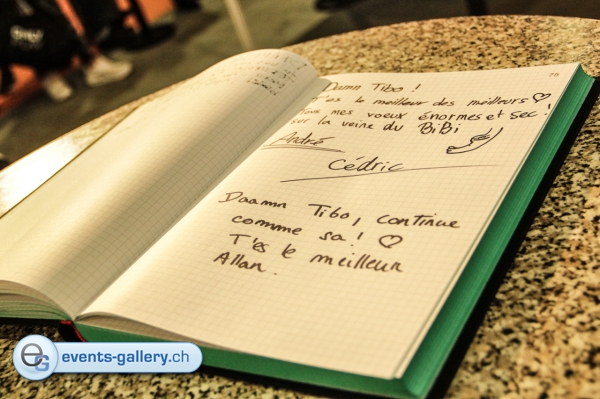 Damn Tibo !
T'es le meilleur des meilleurs ♡
Tous mes voeux énormes et sec !
sur la veine du BiBi
André
Cédric
Daamn Tibo, continue
comme sa ! ♡
T'es le meilleur
Allan.
events-gallery.ch